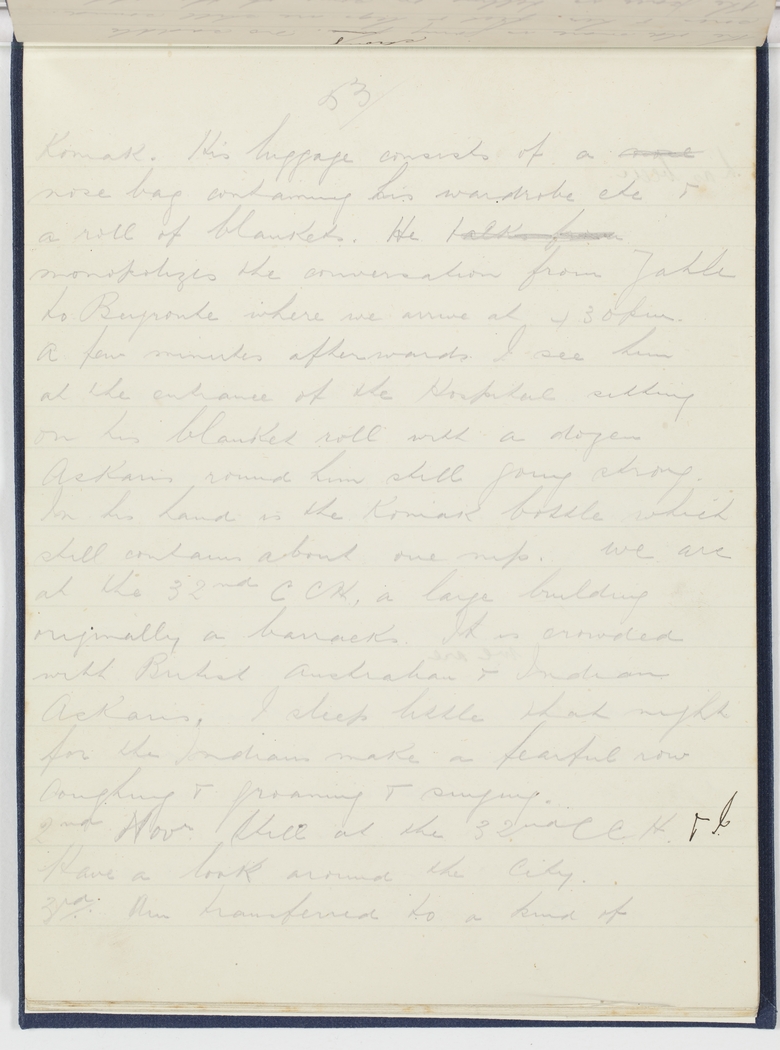 53
Komak. His luggage consists of a
nose bag containing his wardrobe etc &
a roll of blankets. He talks from
monopolizes the conversation from Zahle
to Beyroute where we arrive at 4 30 pm.
A few minutes afterwards I see him
at the entrance of the Hospital sitting
on his blanket roll with a dozen
Askaris round him still going strong.
In his hand is the Komak bottle which
still contains about one nip. We are
at the 32nd C C H, a large building
originally a barracks. It is crowded
with British Australian & Indian
Askaris. I sleep little that night
for the Indians make a fearful row
coughing & groaning & singing.
2nd Nov. Still at the 32nd C C H. & I
Have a look around the City.
3rd. Am transferred to a kind of